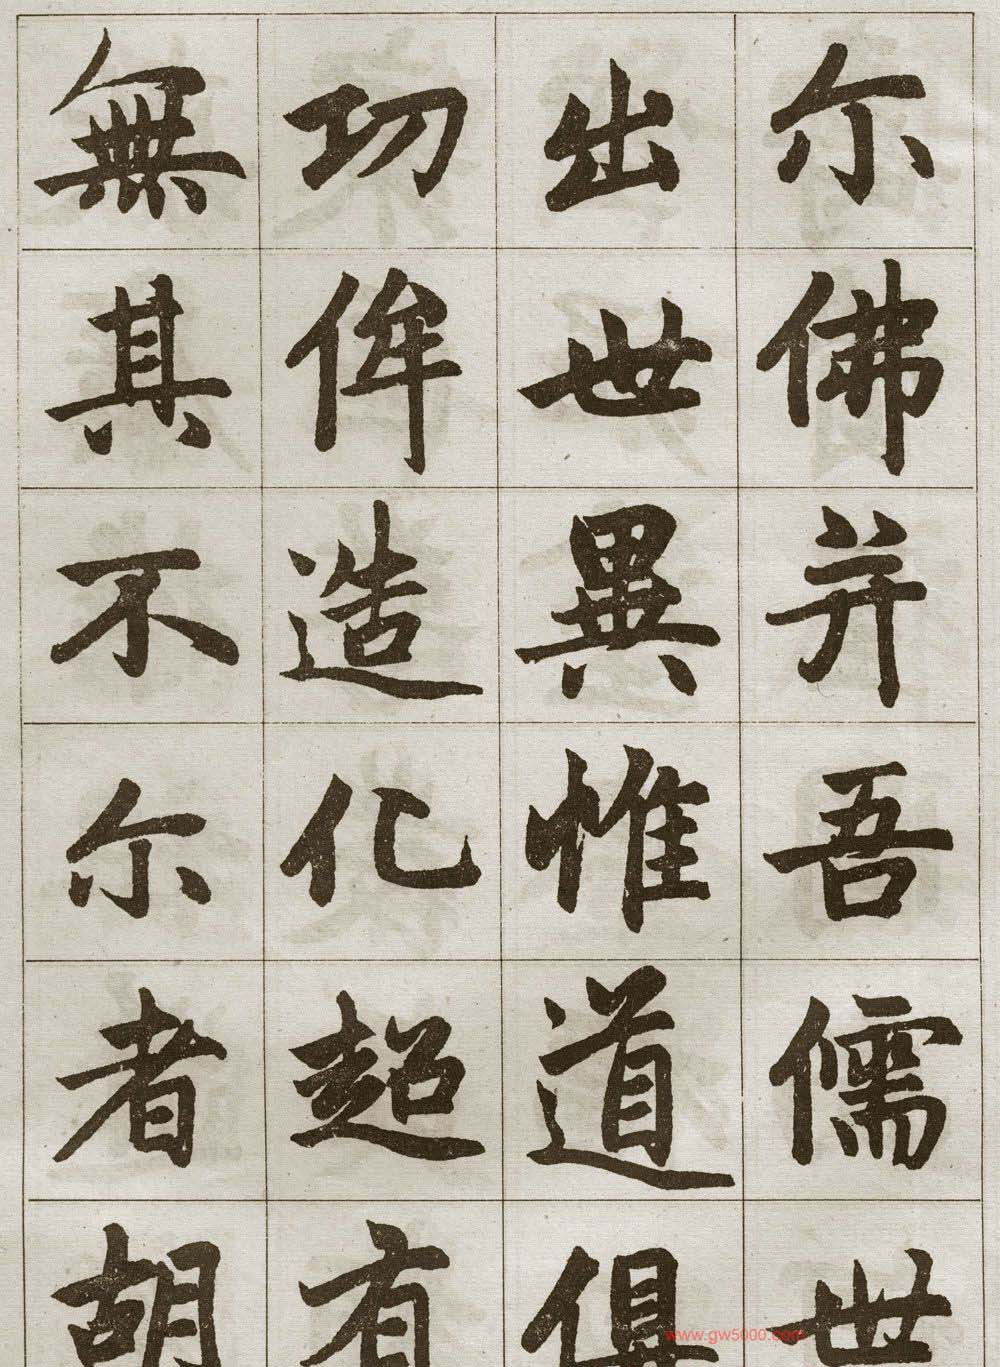 尓佛并吾儒世
出世異惟道俱
功侔造化超有
無其不尓者胡
www.gw5000.com